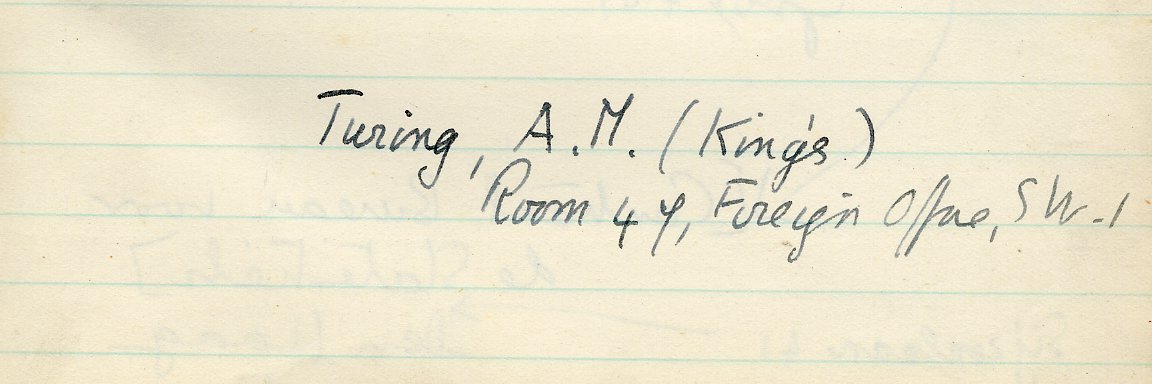 Turing, A.M. (King's)
Room 47, Foreign Office, S.W.1